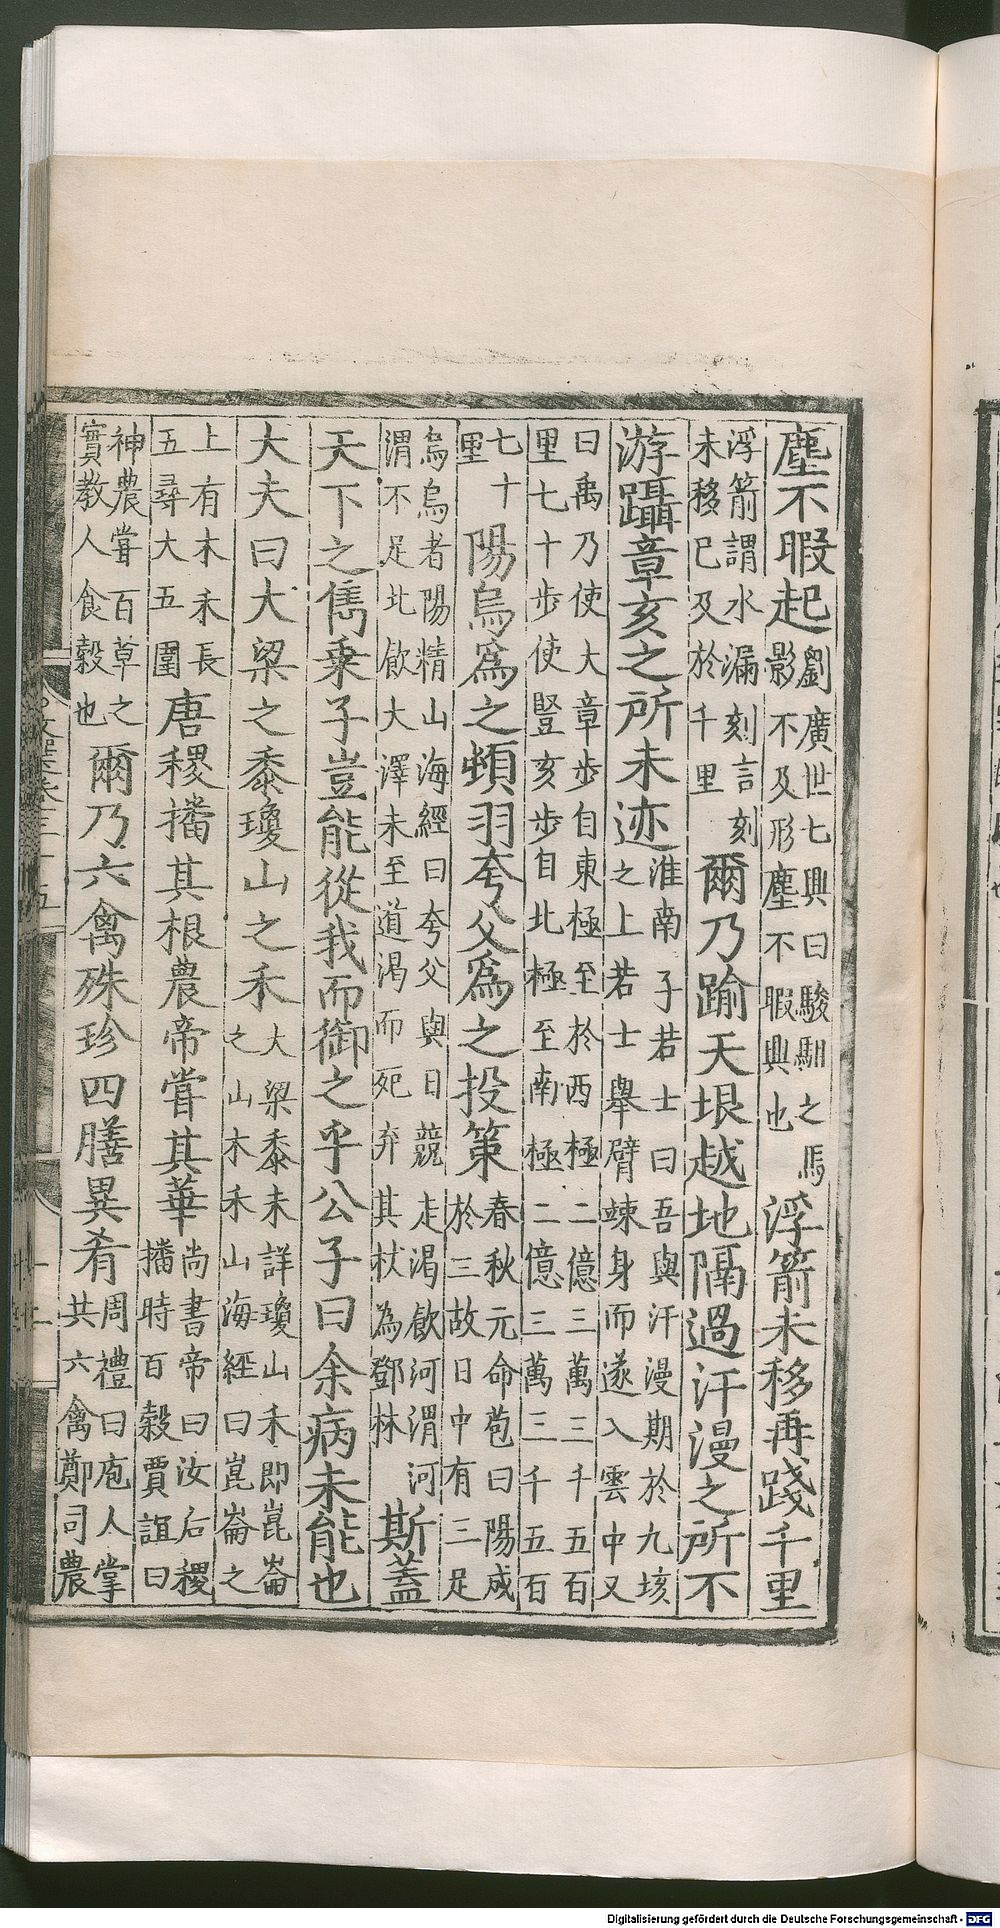 塵不暇起劉廣世七興曰駿馹之馬影不及形塵不暇興也浮箭未移再踐千里
浮箭謂水漏刻言刻未移已及於千里爾乃踰天垠越地隔過汗漫之所不
游躡章亥之所未迹淮南子若士曰吾與汗漫期於九垓之上若士舉臂竦身而遂入雲中又
曰禹乃使大章步自東極至於西極二億三萬三千五百里七十步使豎亥步自北極至南極二億三萬三千五百
七十里陽烏爲之頓羽夸父爲之投策春秋元命苞曰陽成於三故日中有三足
烏烏者陽精山海經曰夸父與日競走渴飲河渭河渭不足北飲大澤未至道渴而死弃其杖為鄧林斯蓋
天下之雋乗子豈能從我而御之乎公子曰余病未能也
大夫曰大梁之黍瓊山之禾大梁黍未詳瓊山禾即崑崙之山木禾山海經曰崑崙之
上有木禾長五尋大五圍唐稷播其根農帝嘗其華尚書帝曰汝后稷播時百穀賈誼曰
神農嘗百草之實教人食穀也爾乃六禽殊珍四膳異肴周禮曰庖人掌共六禽鄭司農
Digitalisierung gefördert durch die Deutsche Forschungsgemeinschaft - DFG